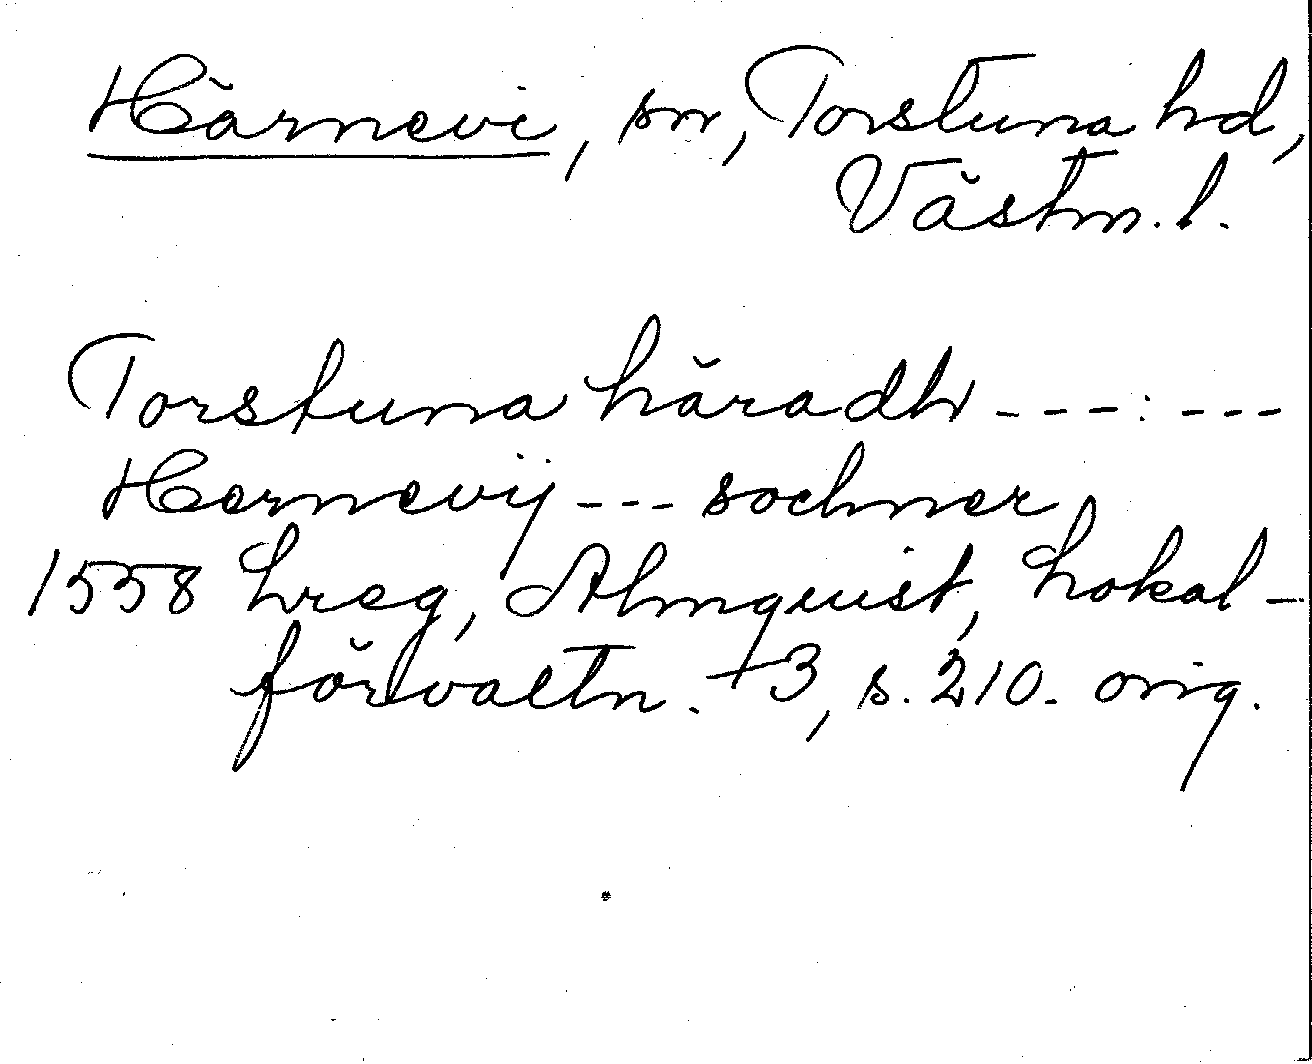 Härnevi, sn, Torstuna hd,
Västm. l.
Torstuna häradh ---:---
Hernevij --- sochner
1558 Lreg, Almquist, Lokal-
förvaltn. +3, s. 210. orig.